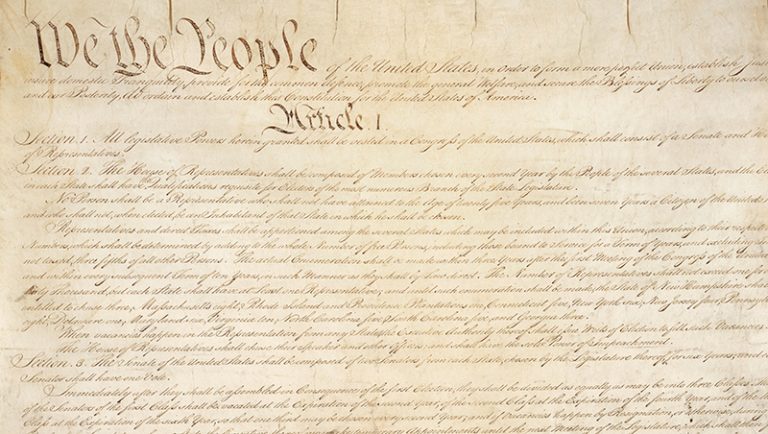 We the People of the United States, in Order to form a more perfect Union, establish Just
insure domestic Tranquility, provide for the common defence, promote the general Welfare, and secure the Blessings of Liberty to ourselve
and our Posterity, do ordain and establish this Constitution for the United States of America.
Article. I.
Section. 1. All legislative Powers herein granted shall be vested in a Congress of the United States, which shall consist of a Senate and Ho
of Representatives.
Section. 2. The House of Representatives shall be composed of Members chosen every second Year by the People of the several States, and the Elec
in each State shall have Qualifications requisite for Electors of the most numerous Branch of the State Legislature.
No Person shall be a Representative who shall not have attained to the Age of twenty five Years, and been seven Years a Citizen of the United
and who shall not, when elected, be an Inhabitant of that State in which he shall be chosen.
Representatives and direct Taxes shall be apportioned among the several States which may be included within this Union, according to their respect
Numbers, which shall be determined by adding to the whole Number of free Persons, including those bound to Service for a Term of Years, and excluding
not taxed, three fifths of all other Persons. The actual Enumeration shall be made within three Years after the first Meeting of the Congress of the United
and within every subsequent Term of ten Years, in such Manner as they shall by Law direct. The Number of Representatives shall not exceed one for
thirty Thousand, but each State shall have at Least one Representative; and until such enumeration shall be made, the State of New Hampshire shall
entitled to chuse three, Massachusetts eight, Rhode Island and Providence Plantations one, Connecticut five, New York six, New Jersey four, Pennsylv
eight, Delaware one, Maryland six, Virginia ten, North Carolina five, South Carolina five, and Georgia three.
When vacancies happen in the Representation from any State, the Executive Authority thereof shall issue Writs of Election to fill such Vacancies.
The House of Representatives shall chuse their Speaker and other Officers; and shall have the sole Power of Impeachment.
Section. 3. The Senate of the United States shall be composed of two Senators from each State, chosen by the Legislature thereof, for six Years; and
Senator shall have one Vote.
Immediately after they shall be assembled in Consequence of the first Election, they shall be divided as equally as may be into three Classes.
of the Senators of the first Class shall be vacated at the Expiration of the second Year, of the second Class at the Expiration of the fourth Year, and of the
Class at the Expiration of the sixth Year, so that one third may be chosen every second Year; and if Vacancies happen by Resignation, or otherwise, during
Appointments until the next Meeting of the Legislature, which shall then